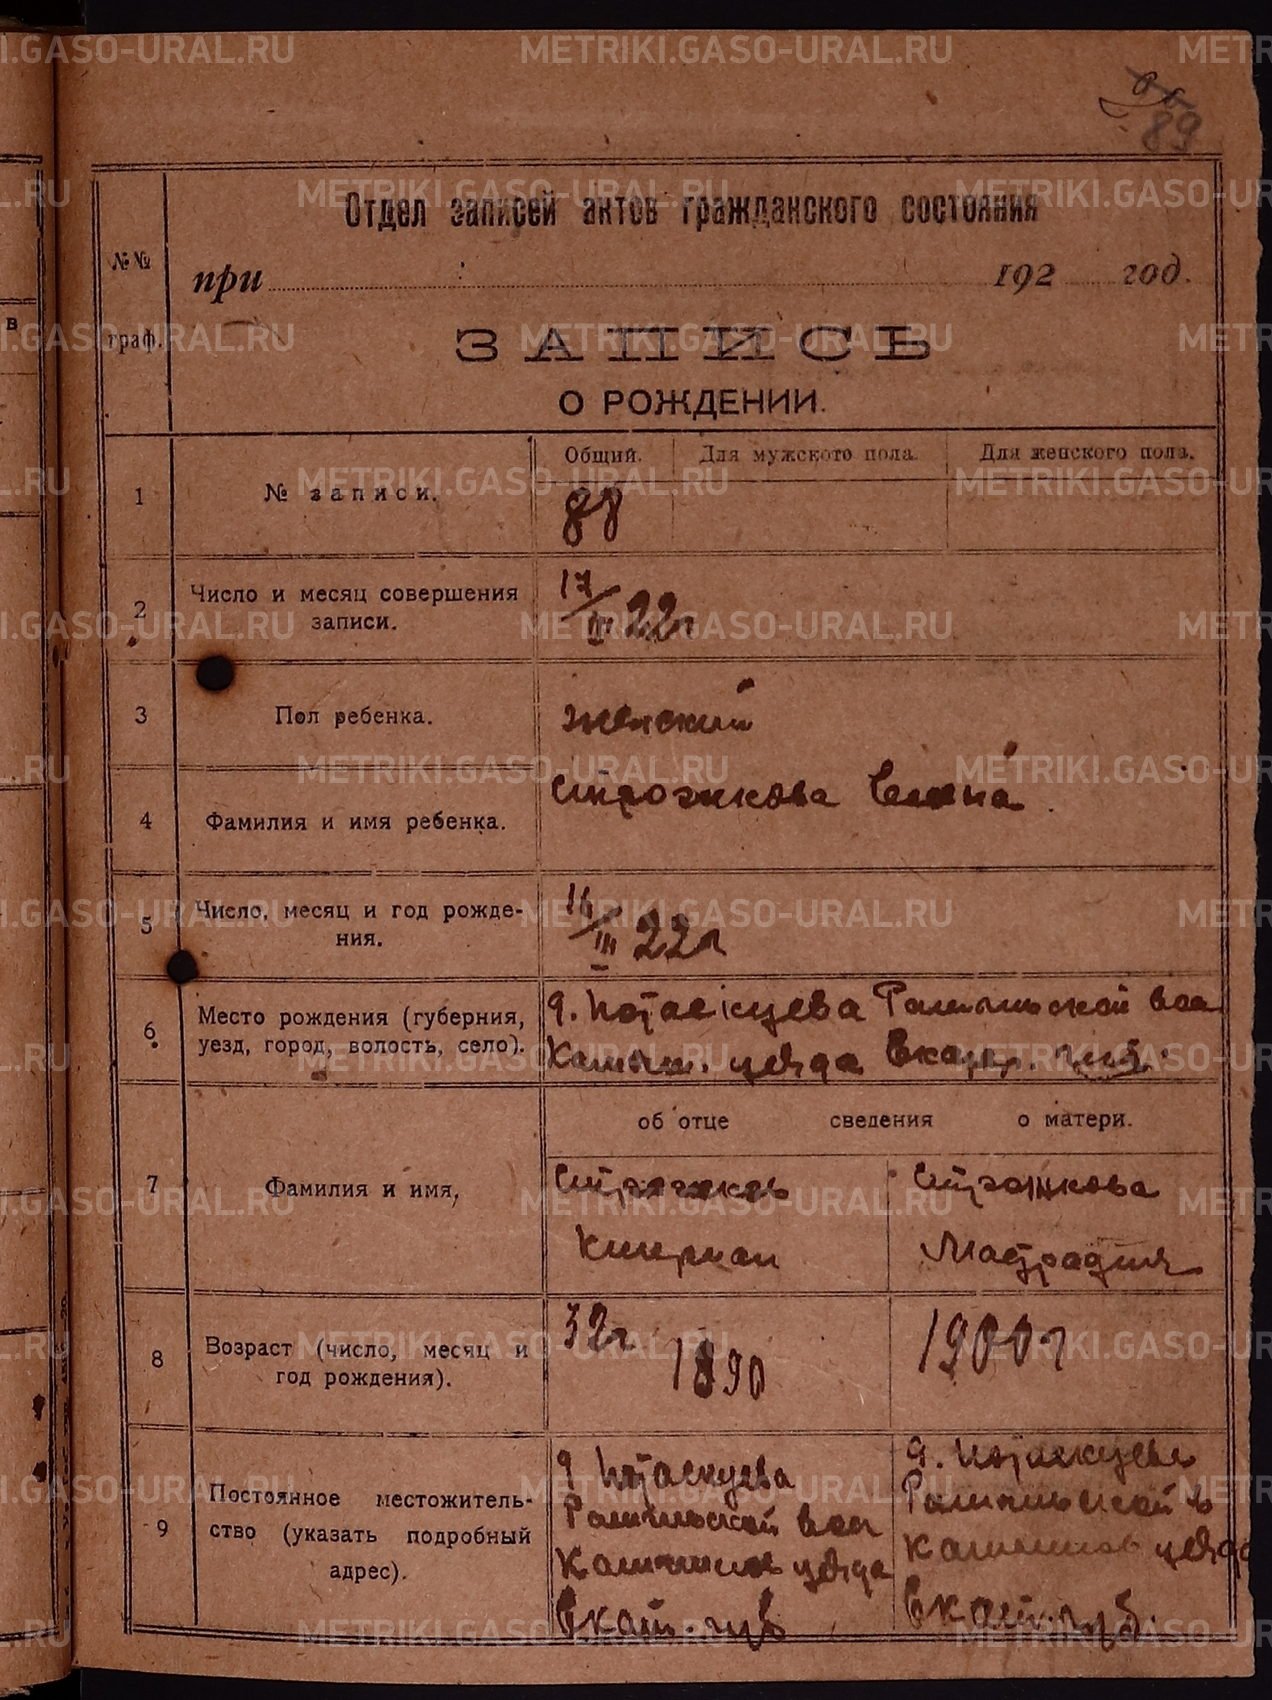 89
Отдел записей актов гражданского состояния
№№
граф.
при 192 год.
ЗАПИСЬ
О РОЖДЕНИИ.
1
№ записи.
Общий.
Для мужского пола.
Для женского пола.
88
2
Число и месяц совершения
записи.
17/III 22г
3
Пол ребенка.
женский
4
Фамилия и имя ребенка.
Строжкова Елена
5
Число, месяц и год рожде-
ния.
16/III 22г
6
Место рождения (губерния,
уезд, город, волость, село).
д. Потаскуева Рамыльской вол
Камыш. уезда Екатер. губ.
об отце сведения о матери.
7
Фамилия и имя,
Строжков
Киприан
Строжкова
8
Возраст (число, месяц и
год рождения).
32г
1890
1900г
9
Постоянное местожитель-
ство (указать подробный
адрес).
д Потаскуева
вол
уезда
Екат. губ
д. Потаскуева
уезда
Екат. губ.
METRIKI.GASO-URAL.RU